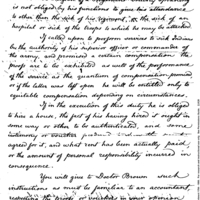 is not obliged by his functions to give his attendance
to other than the sick of his regiment, or the sick of an
hospital or sick of the troops to which he may be attached
If called upon to perform service to sick Indians
by the authority of his superior officer or commander of
the army, and promised a certain compensation,
proofs are to be exhibited as well of the performance
of the service as the quantum of compensation promised
or if the latter was left open he will be entitled only to
equitable compensation depending on circumstances.
If in the execution of this duty he is obliged
to hire a house, the fact of his having hired & sought in
some way or other to be authenticated, and some
agreed for it, and what rent has been actually paid,
or the amount of personal responsibility incurred in
consequence.
You will give to Doctor Brown such
instructions as must be familiar to an accountant,
respecting the proofs or vouchers in your opinion